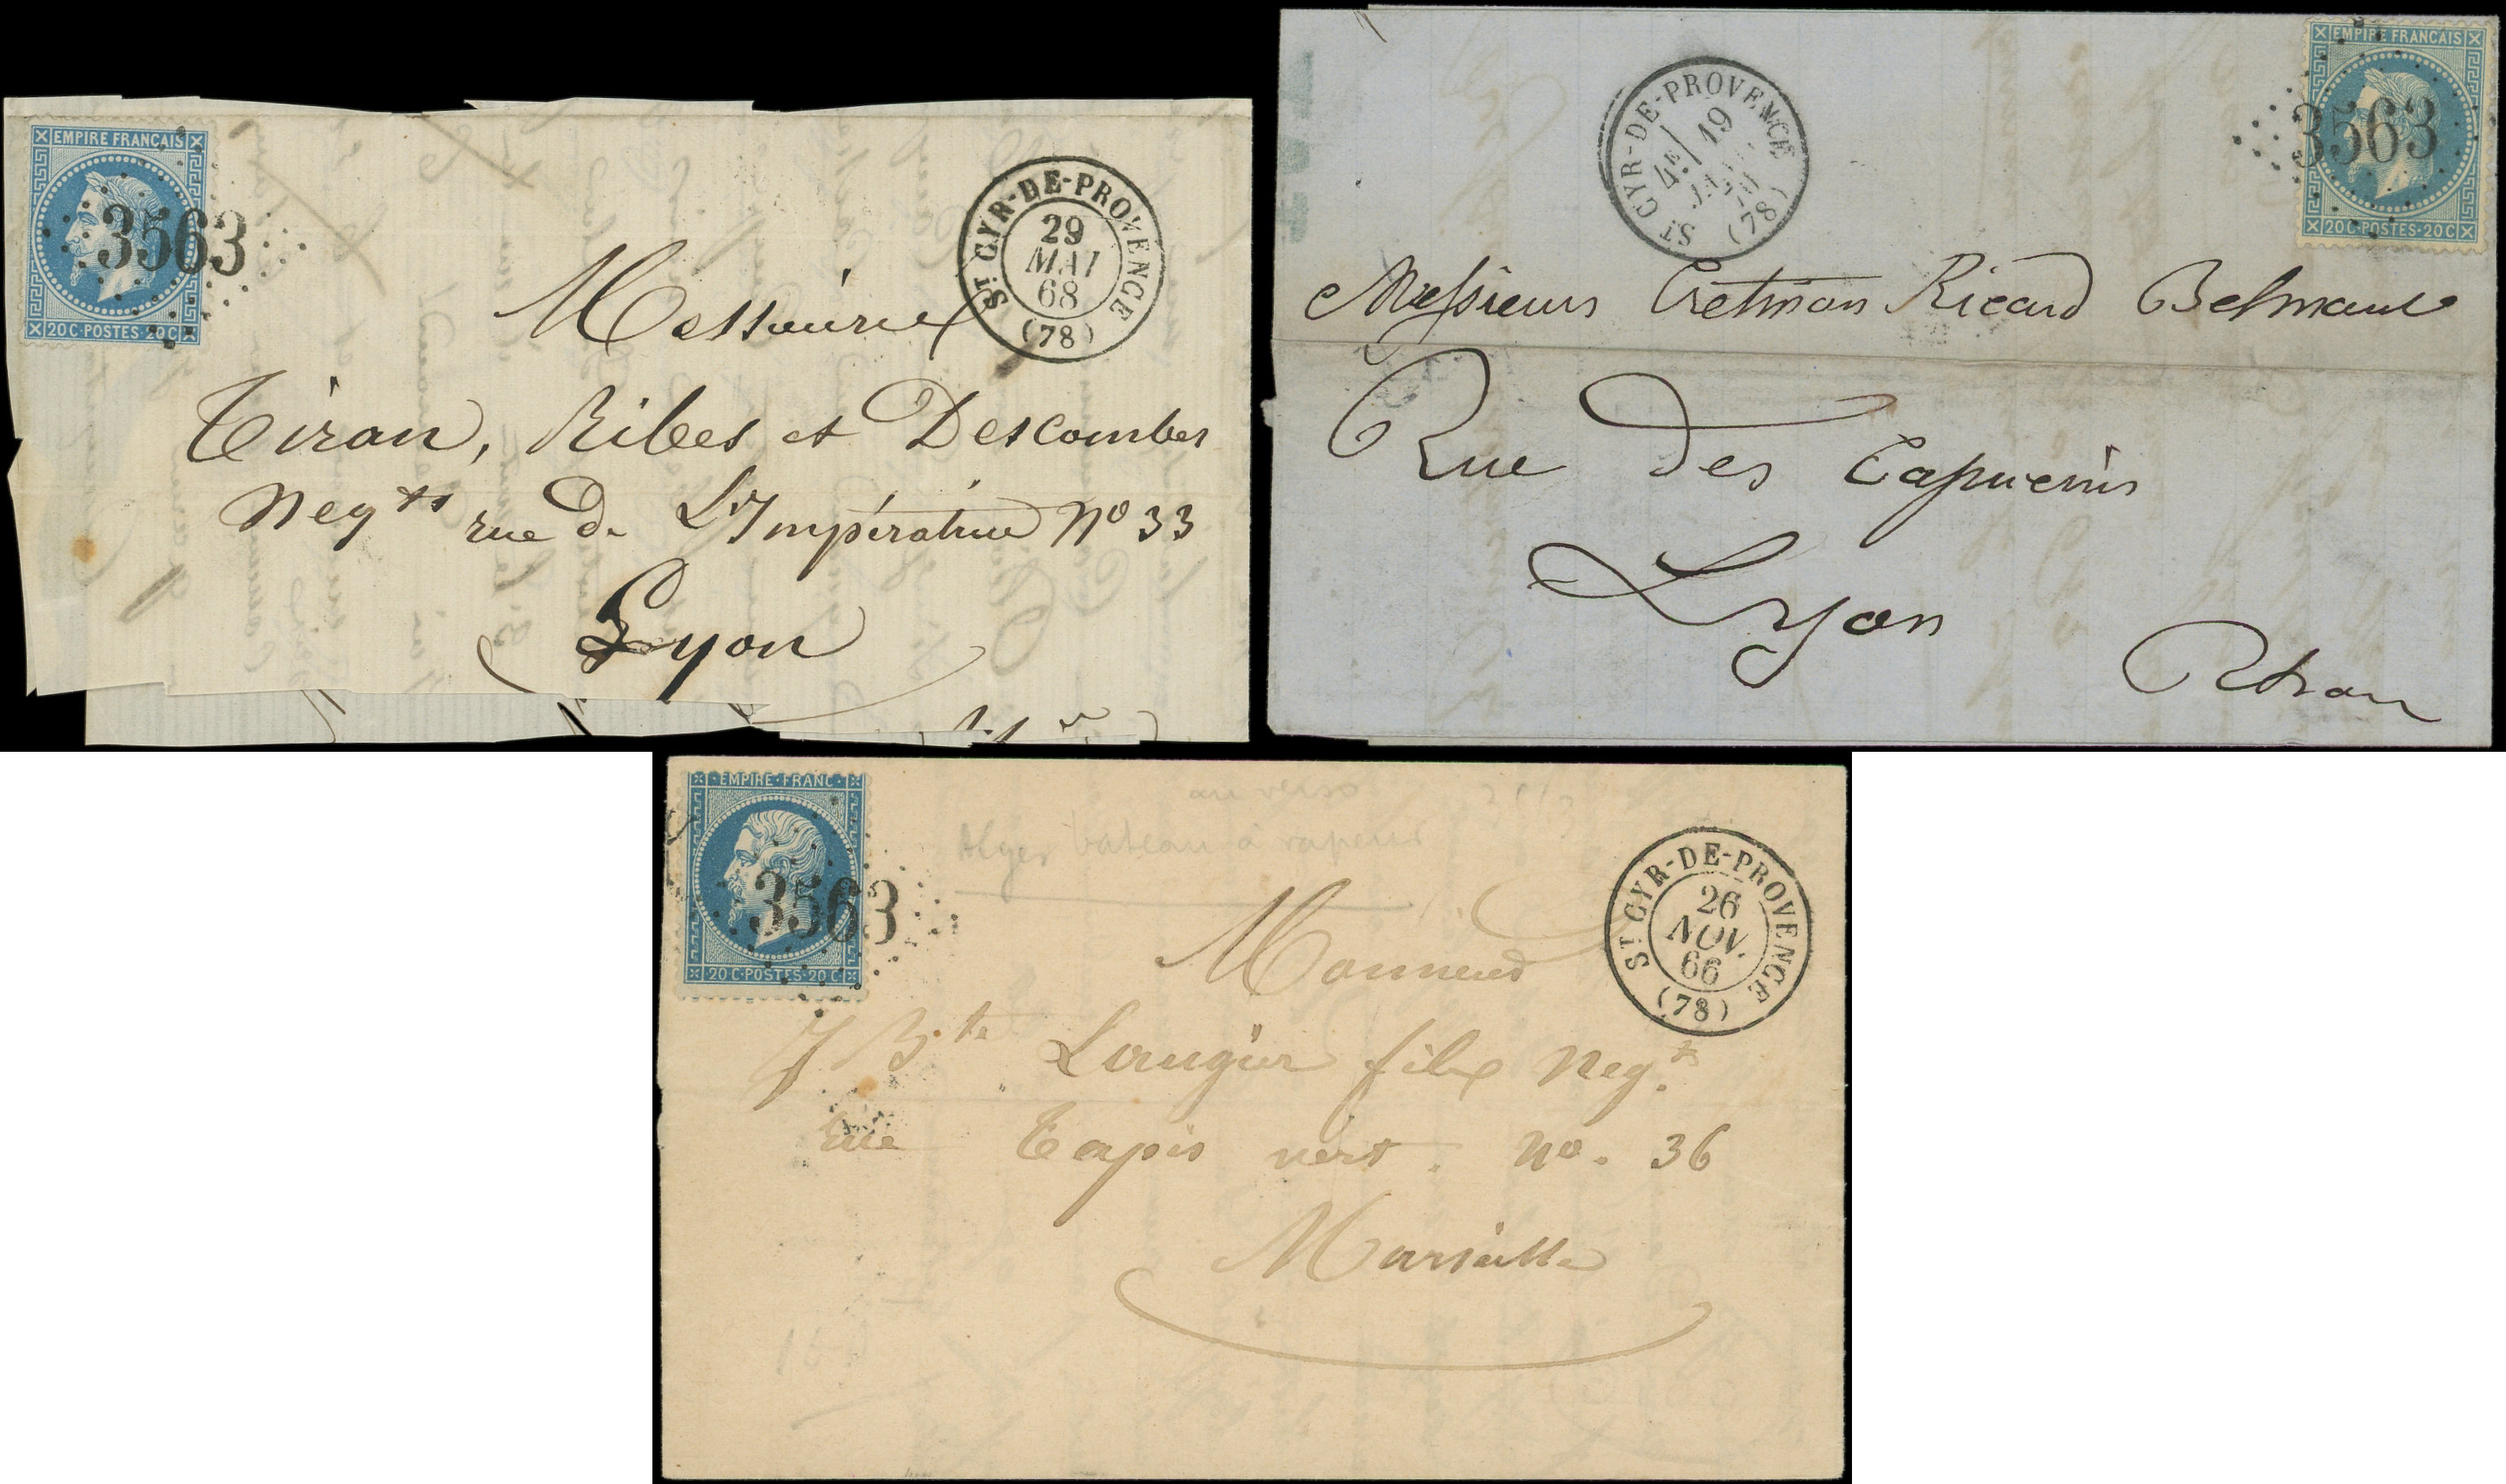 EMPIRE FRANCAIS
3563
20C·POSTES·20C
ST CYR-DE-PROVENCE
29
MAI
68
(78)
Messieurs
Tiran, Ribes et Descombes
Negts rue de L'Impératrice No 33
Lyon
EMPIRE FRANCAIS
3563
20C·POSTES·20C
ST CYR-DE-PROVENCE
4E 19
(78)
Messieurs Ricard
Rue des Capucins
Lyon
Rhon
EMPIRE·FRANC·
3563
20C·POSTES·20C
au verso
Alger bateau à vapeur
ST CYR-DE-PROVENCE
26
NOV.
66
(78)
Monsieur
J Bte Laugier fils Negt
rue Tapis vert. No. 36
Marseille